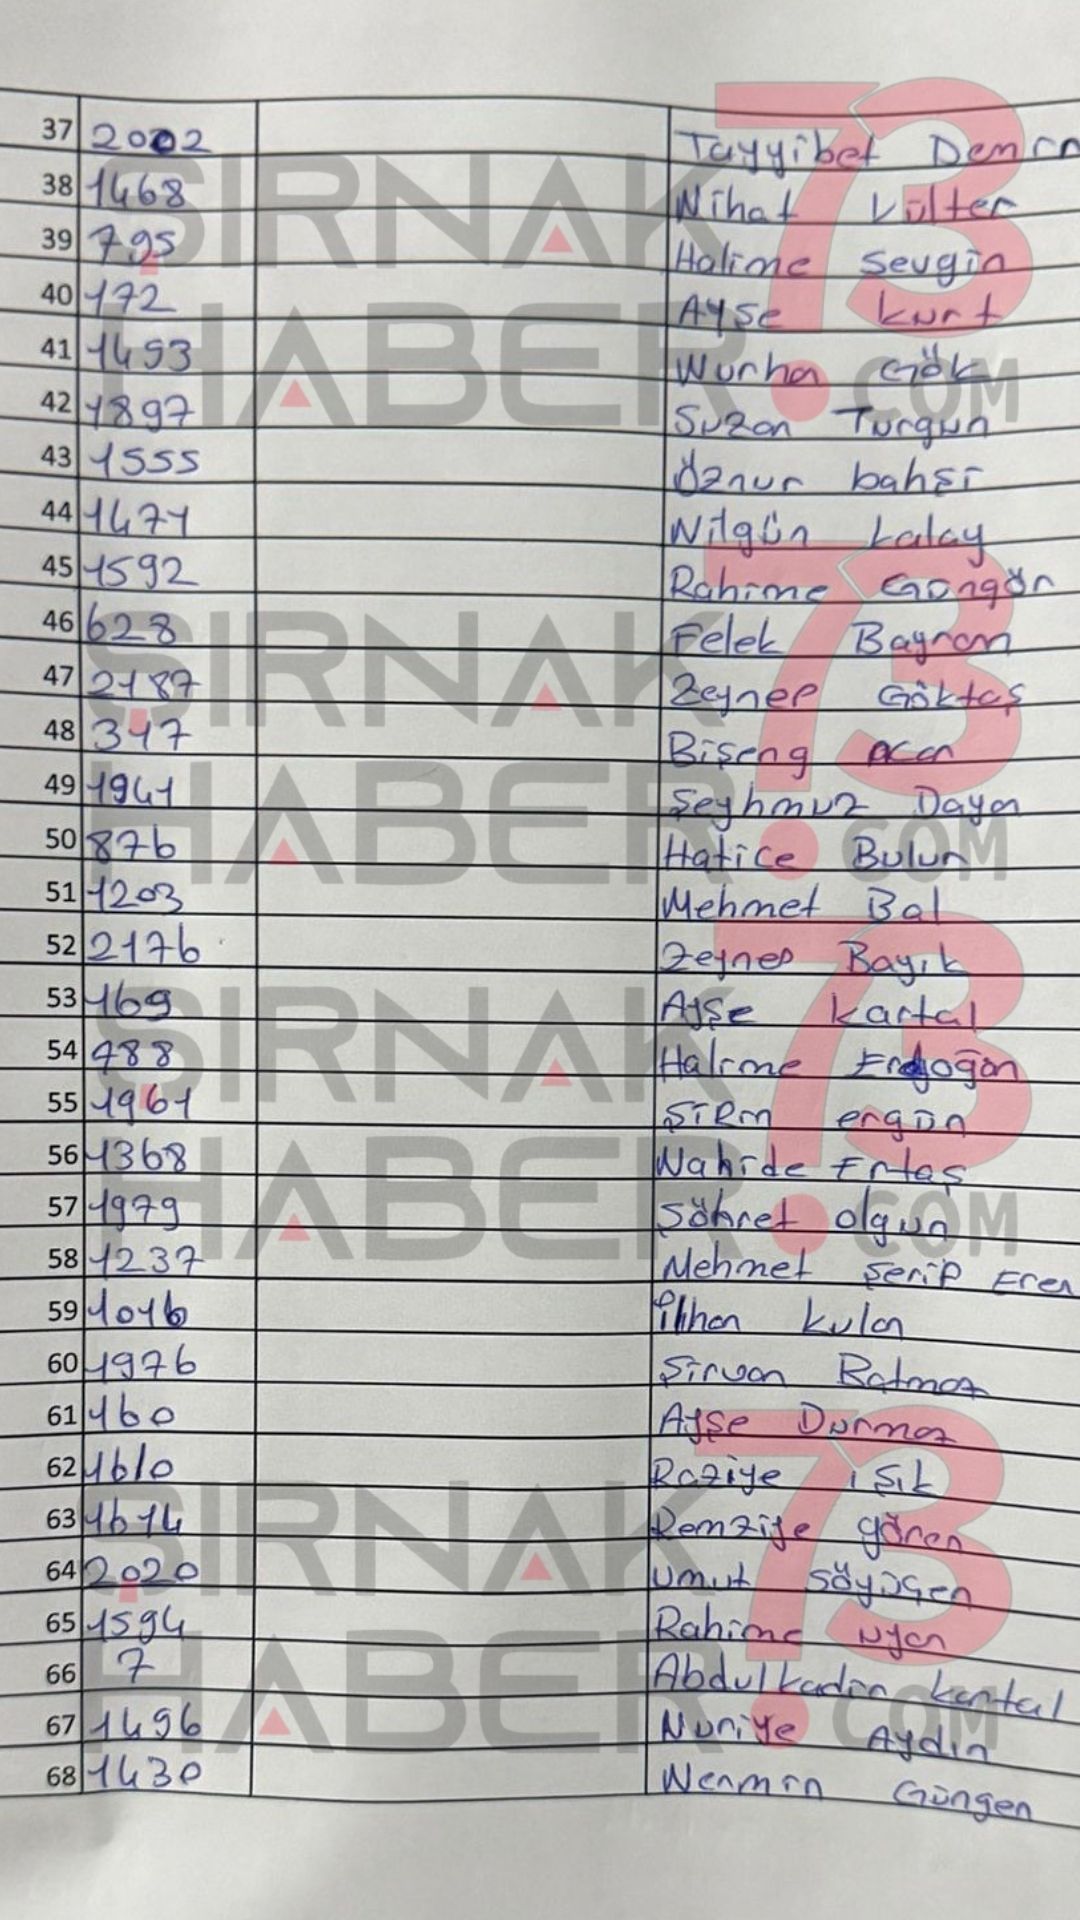 37 2002 Tayyibet Demir
38 1468 Nihat Külter
39 795 Halime Sevgin
40 172 Ayşe Kurt
41 1493 Nurha Gök
42 1897 Suzan Turgun
43 1555 Öznur bahşi
44 1471 Nilgün Kalay
45 1592 Rahime Güngör
46 628 Felek Bayram
47 2187 Zeynep Göktaş
48 347 Bişeng Acar
49 1941 Şeyhmuz Dayan
50 876 Hatice Bulun
51 1203 Mehmet Bal
52 2176 Zeynep Bayık
53 169 Ayşe Kartal
54 788 Halime Erdoğan
55 1961 Şirin ergün
56 1368 Nahide Ertaş
57 1979 Şöhret olgun
58 1237 Mehmet Şerif Eren
59 1016 İlhan Kulan
60 1976 Şirvan Batmaz
61 160 Ayşe Durmaz
62 1610 Raziye ışık
63 1614 Remziye gören
64 2020 Umut Söyügen
65 1594 Rahime Uyan
66 7 Abdulkadir Kartal
67 1496 Nuriye Aydın
68 1430 Nermin Güngen
ŞIRNAK 73
HABER.COM
ŞIRNAK 73
HABER.COM
ŞIRNAK 73
HABER.COM
ŞIRNAK 73
HABER.COM